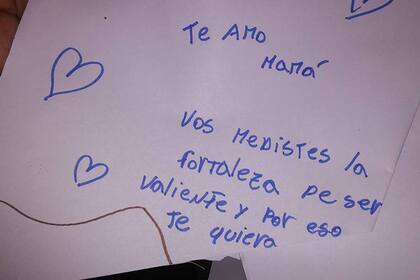 Te AMO
MaMá
Vos MeDistes la
fortaleza De ser
Valiente y Por eso
Te quiera